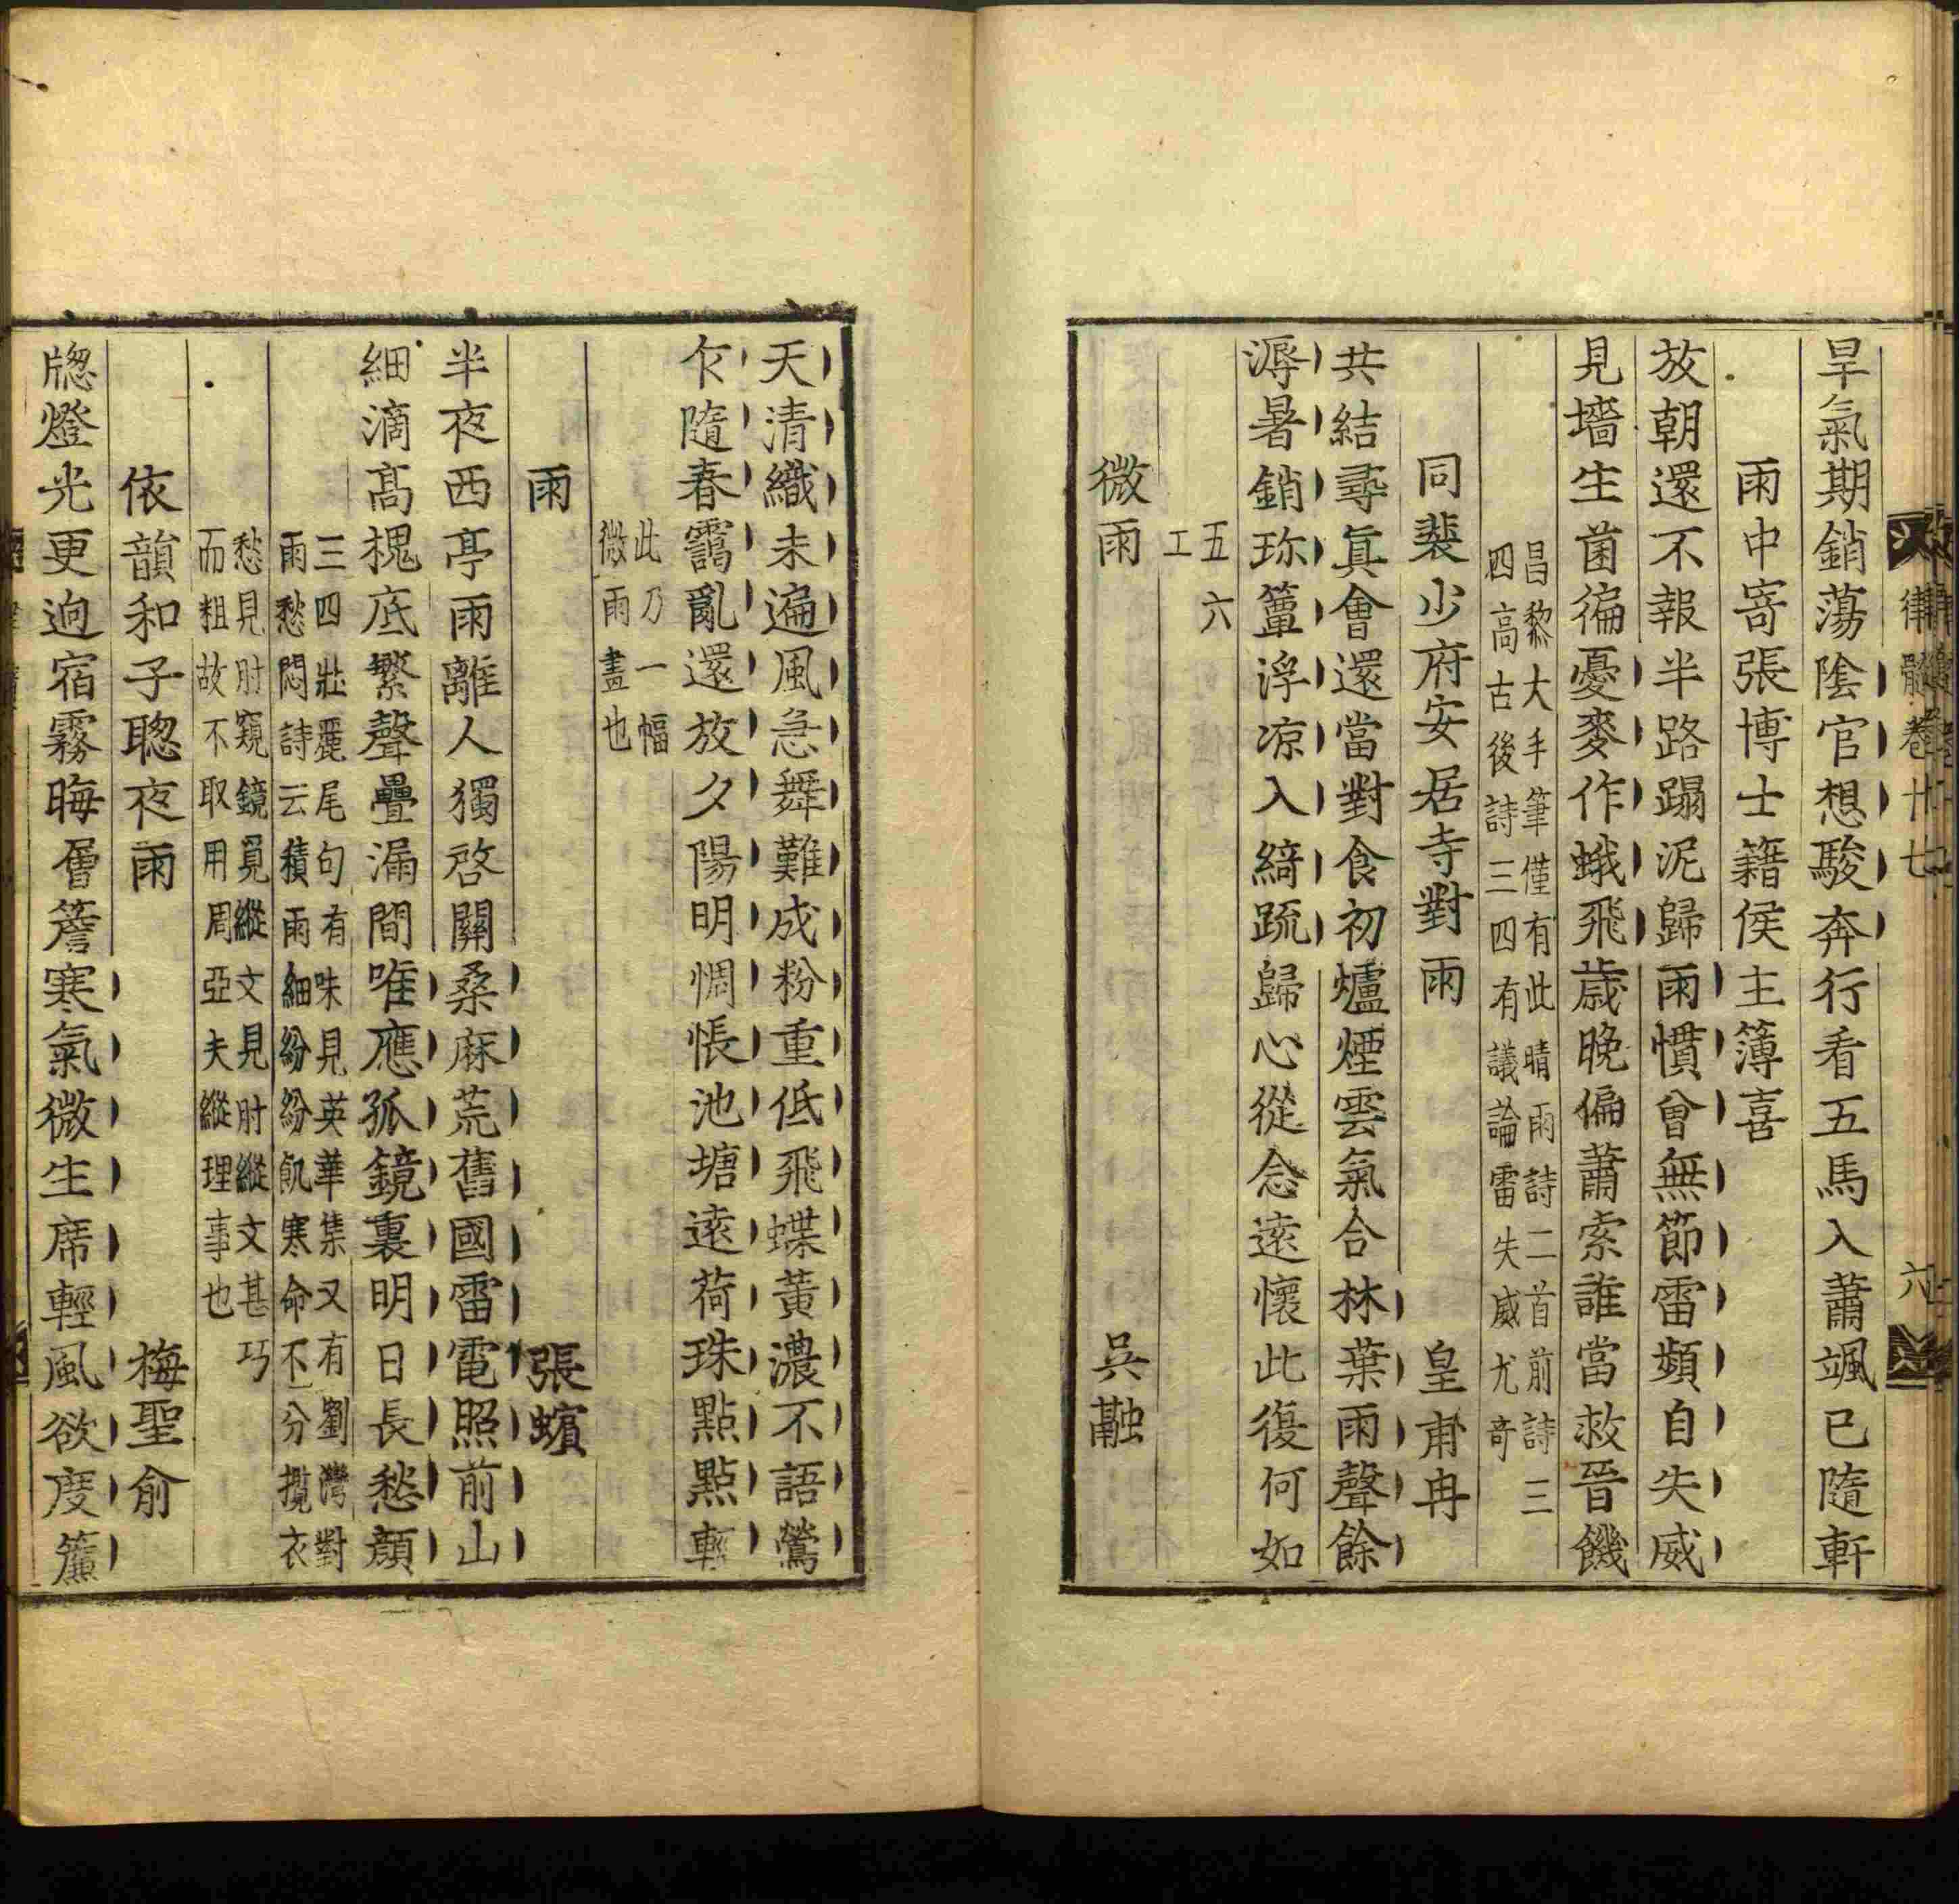 律髓卷廿七 六
旱氣期銷蕩陰官想駿奔行看五馬入蕭颯已隨軒
雨中寄張博士籍侯主簿喜
放朝還不報半路蹋泥歸雨慣曾無節雷頻自失威
見墻生菌徧憂麥作蛾飛歲晚偏蕭索誰當救晉饑
昌黎大手筆僅有此晴雨詩二首前詩三
四高古後詩三四有議論雷失威尤奇
同裴少府安居寺對雨 皇甫冉
共結尋真會還當對食初爐煙雲氣合林葉雨聲餘
溽暑銷珎簟浮凉入綺疏歸心從念遠懷此復何如
五六
工
微雨 吳融
天清織未遍風急舞難成粉重低飛蝶黃濃不語鶯
乍隨春靄亂還放夕陽明惆悵池塘遠荷珠點點輕
此乃一幅
微雨畫也
雨 張蠙
半夜西亭雨離人獨啓關桑麻荒舊國雷電照前山
細滴高槐底繁聲疊漏間唯應孤鏡裏明日長愁顏
三四壯麗尾句有味見英華集又有劉灣對
雨愁悶詩云積雨細紛紛飢寒命不分攬衣
愁見肘窺鏡覓縱文見肘縱文甚巧
而粗故不取用周亞夫縱理事也
依韻和子聰夜雨 梅聖俞
牕燈光更迥宿霧晦層簷寒氣微生席輕風欲度簾